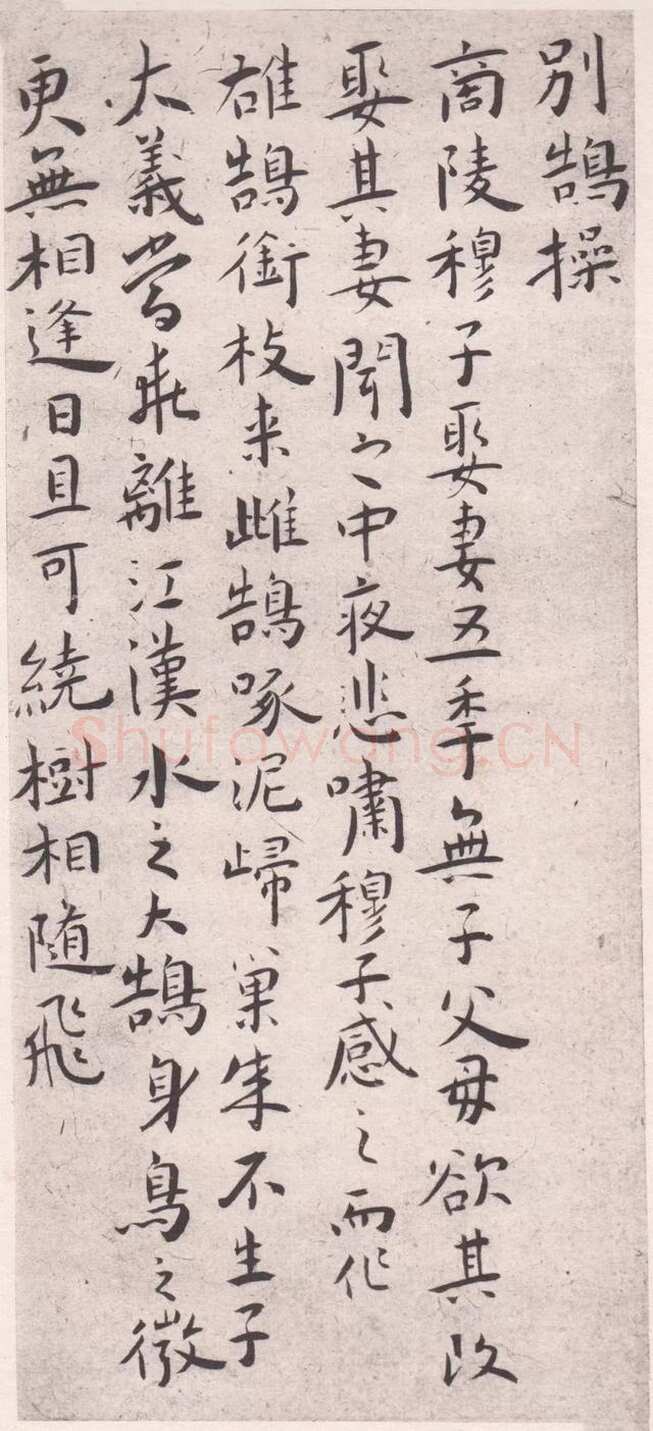 別鵠操
商陵穆子娶妻五秊無子父母欲其改
娶其妻聞之中夜悲嘯穆子感之而作
雄鵠銜枝来雌鵠啄泥歸巢成不生子
大義當乖離江漢水之大鵠身鳥之微
更無相逢日且可繞樹相隨飛
Shufawang.CN